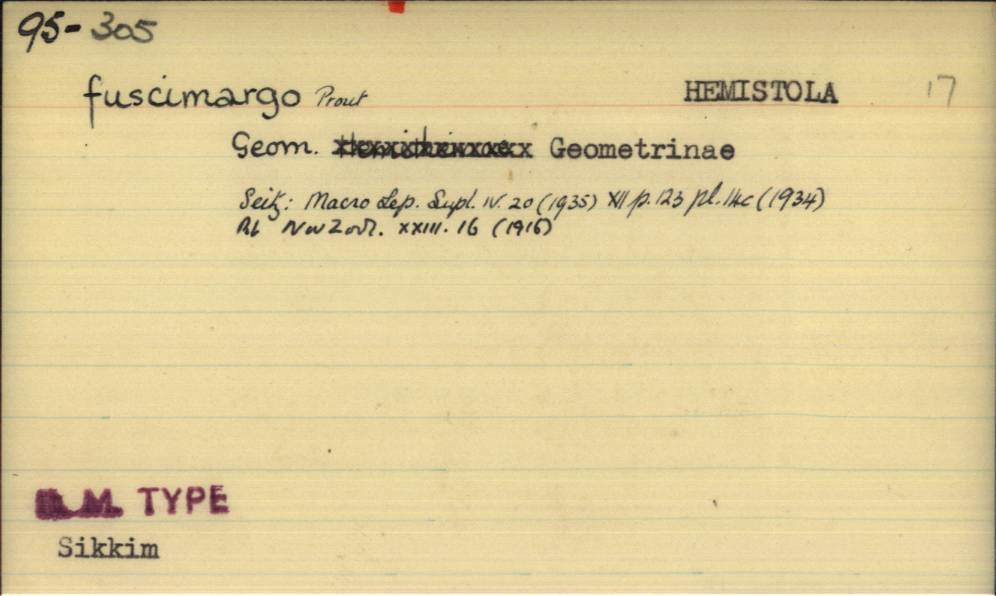 95-305
fuscimargo Prout HEMISTOLA 17
Geom. Geometrinae
Seitz: Macro Lep. Supl. IV. 20 (1935) XII p. 123 pl. 14c (1934)
Nov Zool. XXIII. 16 (1916)
B.M. TYPE
Sikkim